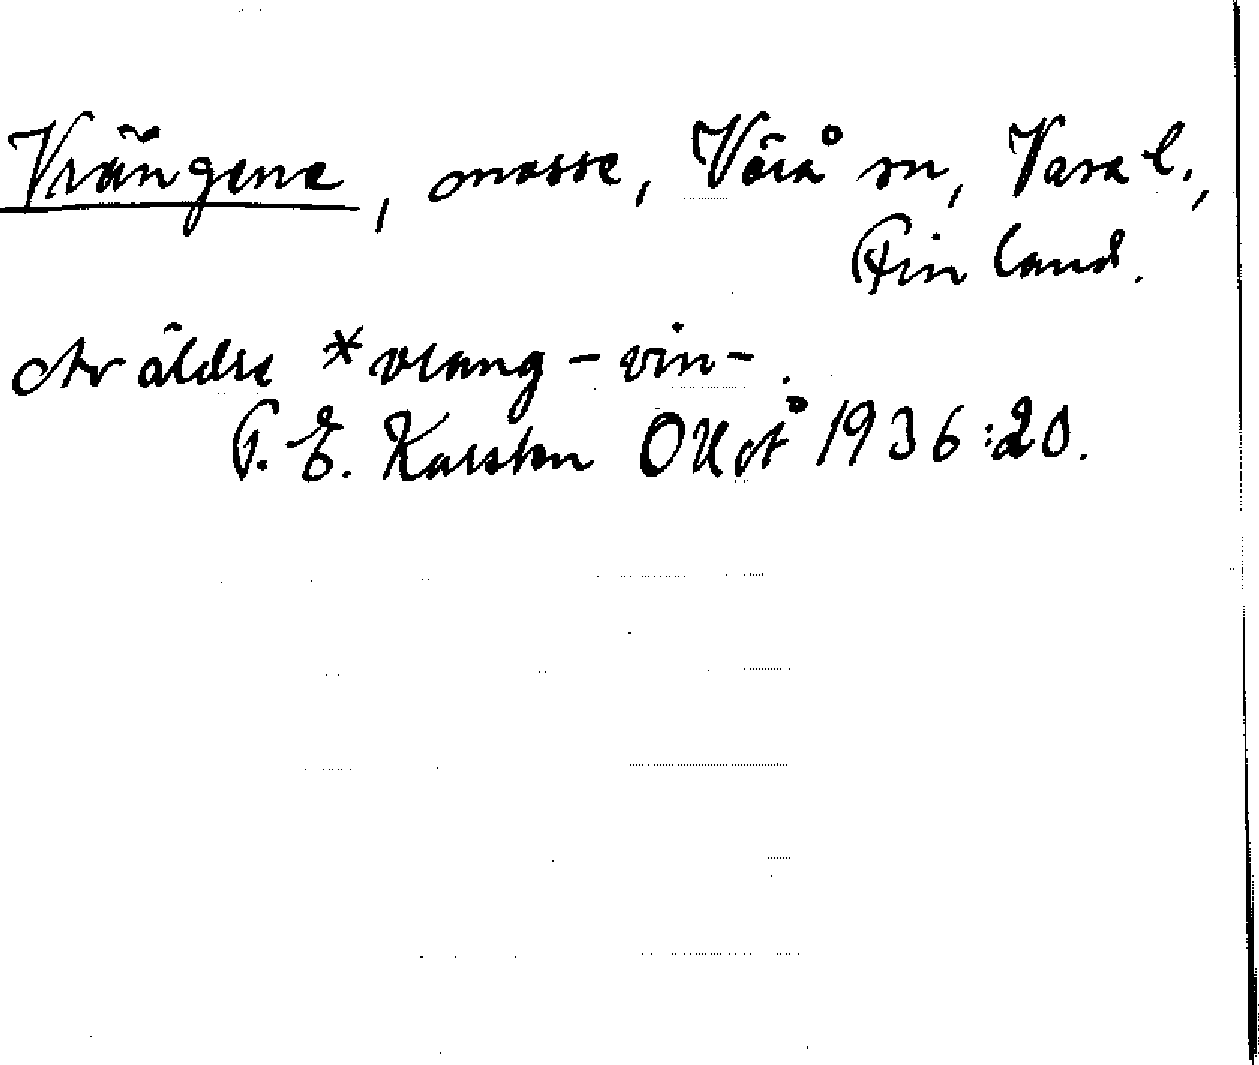 Vrängene, mosse, Vörå sn, Vasa l.,
Finland.
Av äldre *vrang-vin-.
T. E. Karsten OUoÅ 1936:20.